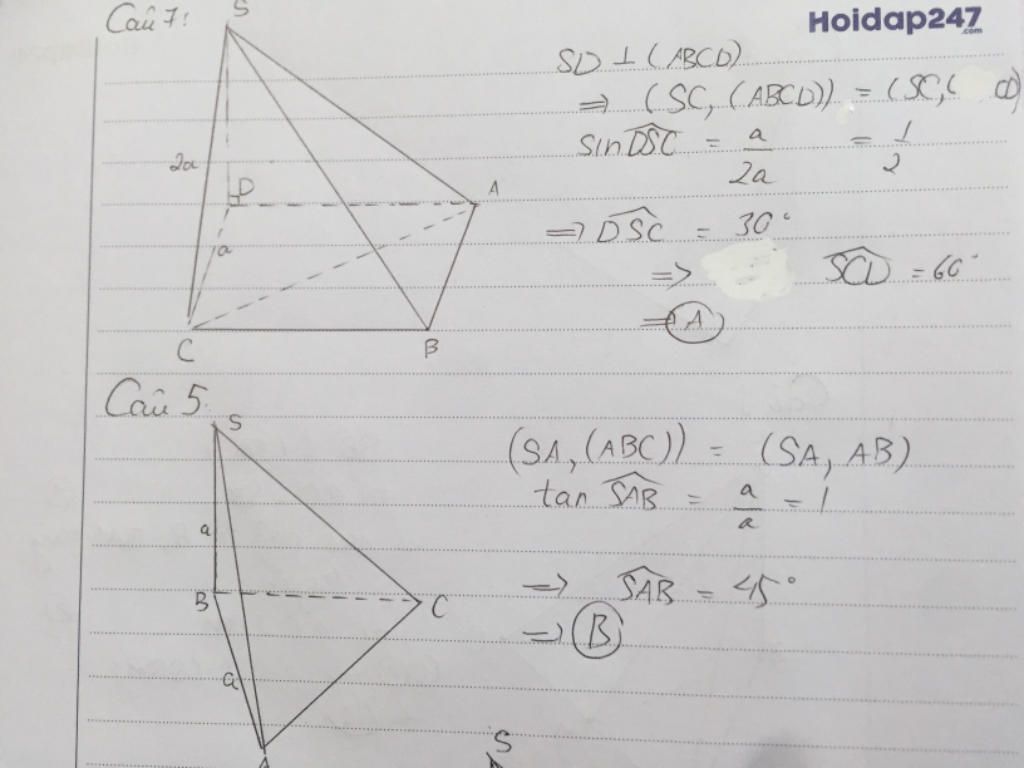 Câu 7:
Hoidap247
.com
S
2a
D
A
a
C
B
SD ⊥ (ABCD)
⇒ (SC, (ABCD)) = (SC, ( CD)
sin DSC = a/2a = 1/2
⇒ DSC = 30°
⇒ SCD = 60°
⇒ A
Câu 5.
S
a
B
C
a
A
(SA, (ABC)) = (SA, AB)
tan SAB = a/a = 1
⇒ SAB = 45°
⇒ B
S